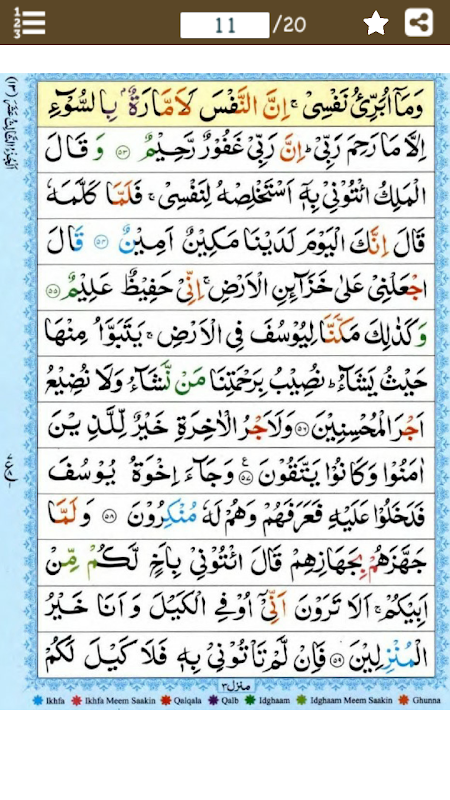 11 /20
وَمَآ اُبَرِّئُ نَفْسِىْ ۚ اِنَّ النَّفْسَ لَاَمَّارَةٌۢ بِالسُّوْٓءِ
اِلَّا مَا رَحِمَ رَبِّىْ ؕ اِنَّ رَبِّىْ غَفُوْرٌ رَّحِيْمٌ ﴿۵۳﴾ وَقَالَ
الْمَلِكُ ائْتُوْنِىْ بِهٖٓ اَسْتَخْلِصْهُ لِنَفْسِىْ ۚ فَلَمَّا كَلَّمَهٗ
قَالَ اِنَّكَ الْيَوْمَ لَدَيْنَا مَكِيْنٌ اَمِيْنٌ ﴿۵۴﴾ قَالَ
اجْعَلْنِىْ عَلٰى خَزَآئِنِ الْاَرْضِ ۚ اِنِّىْ حَفِيْظٌ عَلِيْمٌ ﴿۵۵﴾
وَكَذٰلِكَ مَكَّنَّا لِيُوْسُفَ فِى الْاَرْضِ ۚ يَتَبَوَّاُ مِنْهَا
حَيْثُ يَشَآءُ ؕ نُصِيْبُ بِرَحْمَتِنَا مَنْ نَّشَآءُ وَلَا نُضِيْعُ
اَجْرَ الْمُحْسِنِيْنَ ﴿۵۶﴾ وَلَاَجْرُ الْاٰخِرَةِ خَيْرٌ لِّلَّذِيْنَ
اٰمَنُوْا وَكَانُوْا يَتَّقُوْنَ ﴿۵۷﴾ وَجَآءَ اِخْوَةُ يُوْسُفَ
فَدَخَلُوْا عَلَيْهِ فَعَرَفَهُمْ وَهُمْ لَهٗ مُنْكِرُوْنَ ﴿۵۸﴾ وَلَمَّا
جَهَّزَهُمْ بِجَهَازِهِمْ قَالَ ائْتُوْنِىْ بِاَخٍ لَّكُمْ مِّنْ
اَبِيْكُمْ ۚ اَلَا تَرَوْنَ اَنِّىْٓ اُوْفِى الْكَيْلَ وَاَنَا خَيْرُ
الْمُنْزِلِيْنَ ﴿۵۹﴾ فَاِنْ لَّمْ تَاْتُوْنِىْ بِهٖ فَلَا كَيْلَ لَكُمْ
منزل ۳
Ikhfa Ikhfa Meem Saakin Qalqala Qalb Idghaam Idghaam Meem Saakin Ghunna